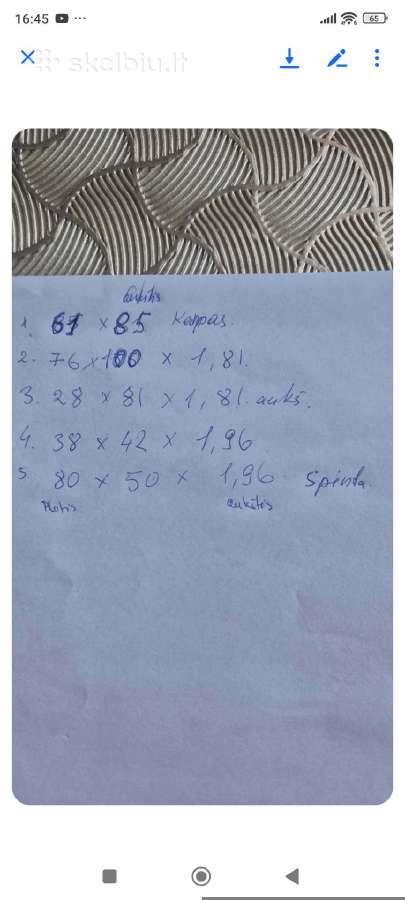 16:45 ... 65
skelbiu.lt
aukštis
1. 61 x 85 Kampas.
2. 76 x 100 x 1,81.
3. 28 x 81 x 1,81. aukš.
4. 38 x 42 x 1,96
5. 80 x 50 x 1,96. Spinta.
Plotis aukštis